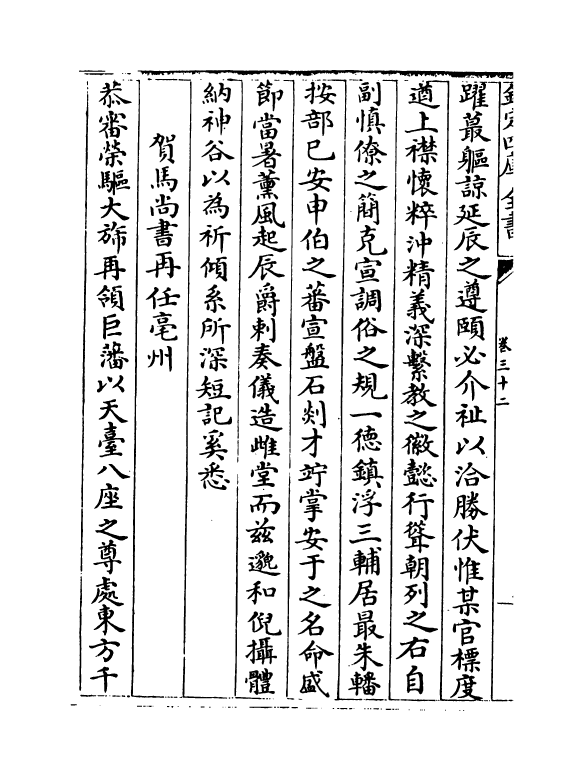 欽定四庫全書
卷三十二
躍蕞軀諒延辰之遵頤必介祉以洽勝伏惟某官標度
遒上襟懷粹沖精義深繫教之徽懿行聳朝列之右自
副慎僚之簡克宣調俗之規一德鎮浮三輔居最朱轓
按部已安申伯之蕃宣盤石剡才竚掌安于之名命盛
節當暑薰風起辰爵刺奏儀造雌堂而茲邈和倪攝體
納神谷以為祈傾系所深短記奚悉
賀馬尚書再任亳州
恭審榮驅大斾再領巨藩以天臺八座之尊處東方千